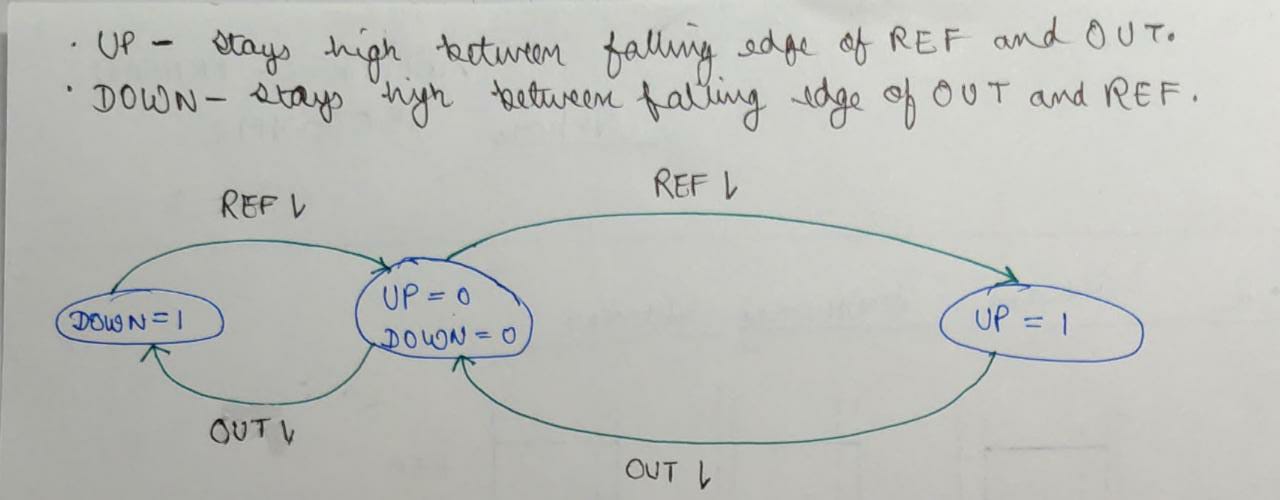 · UP – stays high between falling edge of REF and OUT.
· DOWN – stays high between falling edge of OUT and REF.
REF ↓
REF ↓
DOWN = 1
UP = 0
DOWN = 0
UP = 1
OUT ↓
OUT ↓